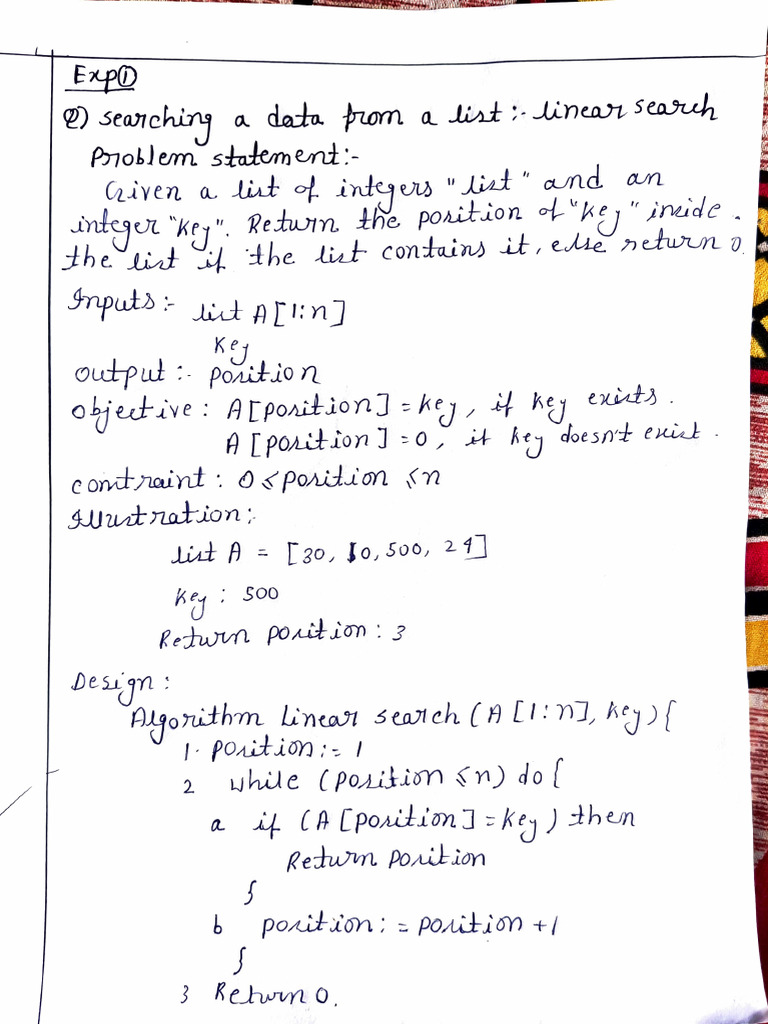 Exp①
Q) searching a data from a list :- linear search
Problem statement:-
Given a list of integers "list" and an
integer "key". Return the position of "key" inside.
the list if the list contains it, else return 0.
Inputs :- list A[1:n]
Key
output :- position
objective : A[position] = key, if key exists.
A [position] = 0, if key doesn't exist.
contraint : 0 ≤ position ≤ n
Illustration:
list A = [30, 10, 500, 24]
Key : 500
Return position : 3
Design :
Algorithm Linear search (A[1:n], key) {
1. position := 1
2 while (position ≤ n) do {
a if (A [position] = key) then
Return position
}
b position := position + 1
}
3 Return 0.